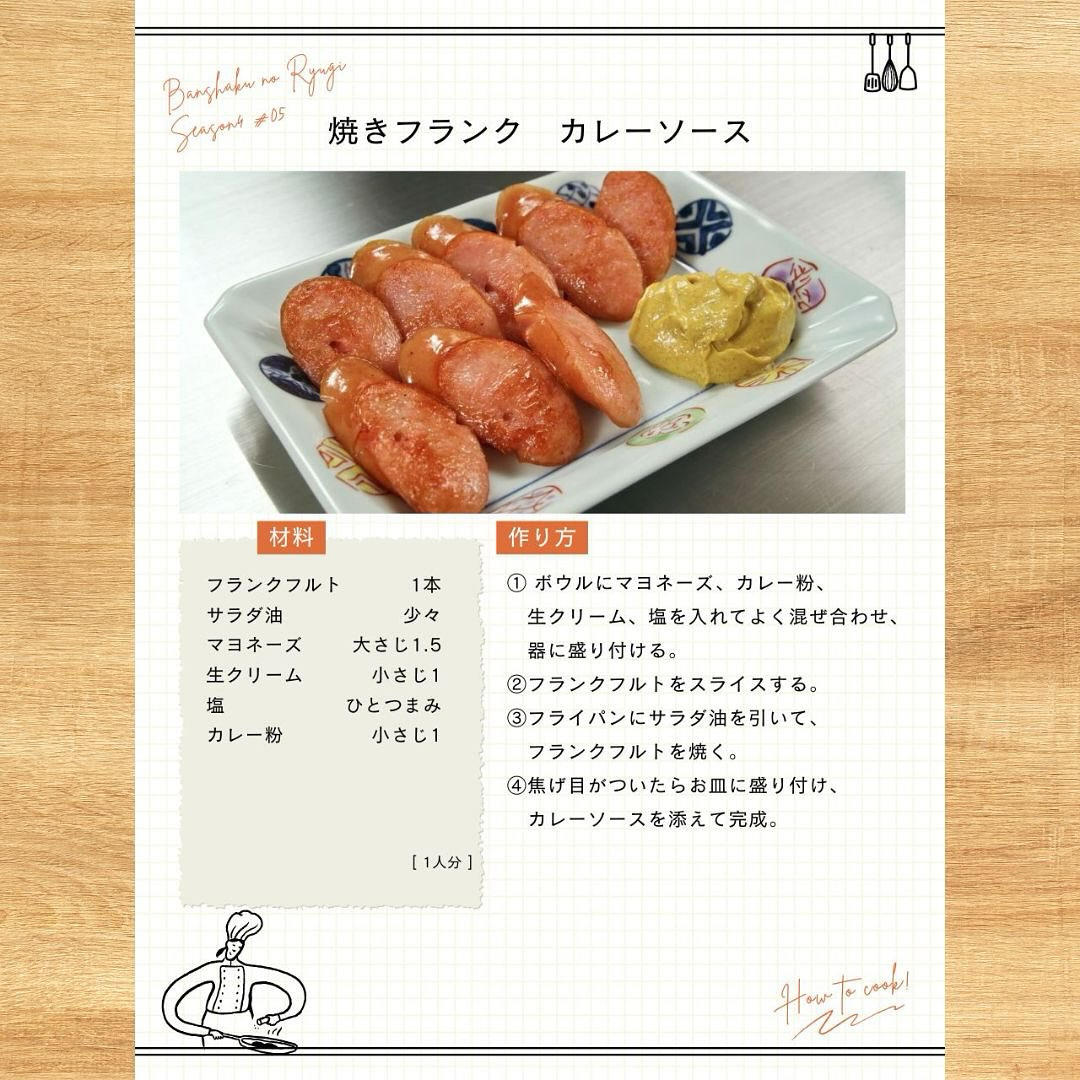 Banshaku no Ryugi
Season4 #05
焼きフランク　カレーソース
材料
フランクフルト 1本
サラダ油 少々
マヨネーズ 大さじ1.5
生クリーム 小さじ1
塩 ひとつまみ
カレー粉 小さじ1
[ 1人分 ]
作り方
① ボウルにマヨネーズ、カレー粉、
生クリーム、塩を入れてよく混ぜ合わせ、
器に盛り付ける。
②フランクフルトをスライスする。
③フライパンにサラダ油を引いて、
フランクフルトを焼く。
④焦げ目がついたらお皿に盛り付け、
カレーソースを添えて完成。
How to cook!